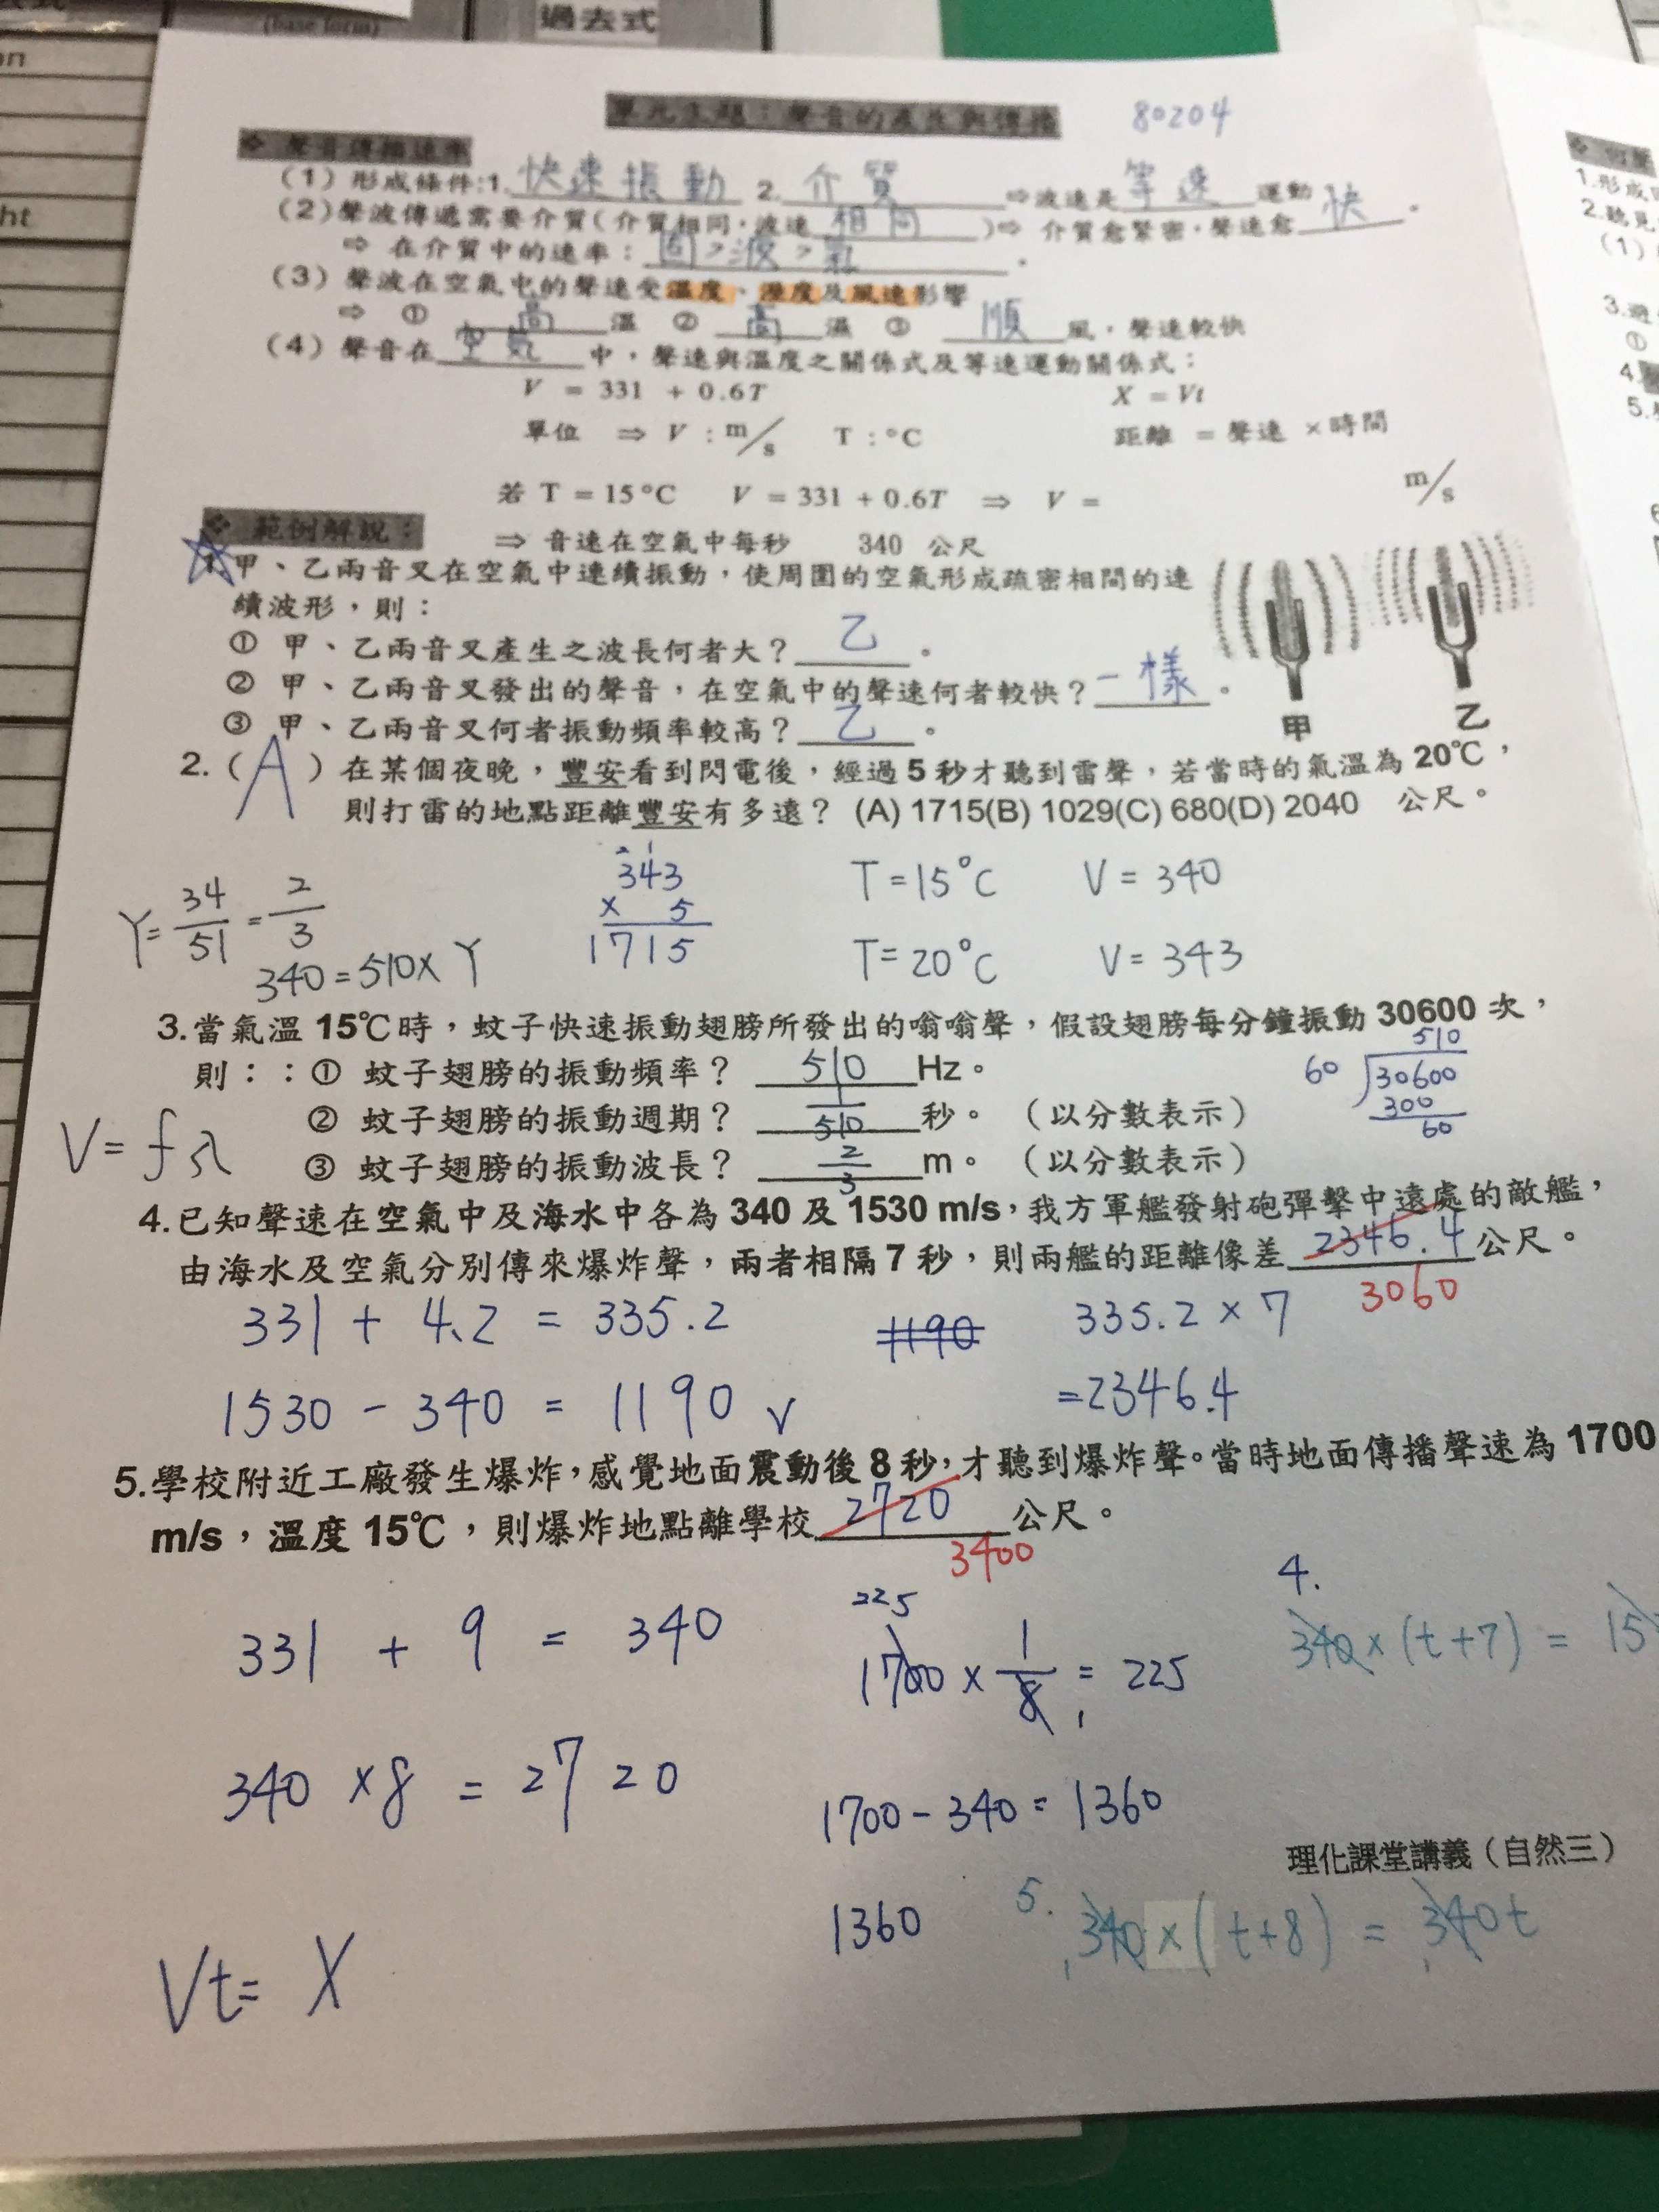 (base form)
過去式
單元主題：聲音的產生與傳播
80204
❖ 聲音傳播速率
(1) 形成條件:1. 快速振動 2. 介質 ⇒波速是 等速 運動
(2)聲波傳遞需要介質(介質相同，波速 相同 )⇒ 介質愈緊密，聲速愈 快 。
⇒ 在介質中的速率： 固>液>氣 。
(3) 聲波在空氣中的聲速受溫度、溼度及風速影響
⇒ ① 高 溫 ② 高 濕 ③ 順 風，聲速較快
(4) 聲音在 空氣 中，聲速與溫度之關係式及等速運動關係式：
V = 331 + 0.6T X = Vt
單位 ⇒ V : m/s T : °C 距離 = 聲速 ×時間
若 T = 15°C V = 331 + 0.6T ⇒ V = m/s
❖ 範例解說：
⇒ 音速在空氣中每秒 340 公尺
1.甲、乙兩音叉在空氣中連續振動，使周圍的空氣形成疏密相間的連
續波形，則：
① 甲、乙兩音叉產生之波長何者大？ 乙 。
② 甲、乙兩音叉發出的聲音，在空氣中的聲速何者較快？ 一樣 。
③ 甲、乙兩音叉何者振動頻率較高？ 乙 。
甲 乙
2. ( A ) 在某個夜晚，豐安看到閃電後，經過 5 秒才聽到雷聲，若當時的氣溫為 20℃，
則打雷的地點距離豐安有多遠？ (A) 1715(B) 1029(C) 680(D) 2040 公尺。
Y= 34/51 = 2/3
340=510×Y
343
× 5
1715
T=15°C V=340
T=20°C V=343
3.當氣溫 15℃時，蚊子快速振動翅膀所發出的嗡嗡聲，假設翅膀每分鐘振動 30600 次，
則：：① 蚊子翅膀的振動頻率？ 510 Hz。
② 蚊子翅膀的振動週期？ 1/510 秒。 （以分數表示）
③ 蚊子翅膀的振動波長？ 2/3 m。 （以分數表示）
510
60 30600
300
60
V=fλ
4.已知聲速在空氣中及海水中各為 340 及 1530 m/s，我方軍艦發射砲彈擊中遠處的敵艦，
由海水及空氣分別傳來爆炸聲，兩者相隔 7 秒，則兩艦的距離像差 2346.4 公尺。
3060
331 + 4.2 = 335.2 1190 335.2 × 7
1530 - 340 = 1190 v =2346.4
5.學校附近工廠發生爆炸，感覺地面震動後 8 秒，才聽到爆炸聲。當時地面傳播聲速為 1700
m/s，溫度 15℃，則爆炸地點離學校 2720 公尺。
3400
331 + 9 = 340
225
1700 × 1/8 = 225
4.
340×(t+7) = 15
340 ×8 = 2720
1700-340=1360
理化課堂講義（自然三）
1360
5. 340×(t+8) = 340t
Vt= X